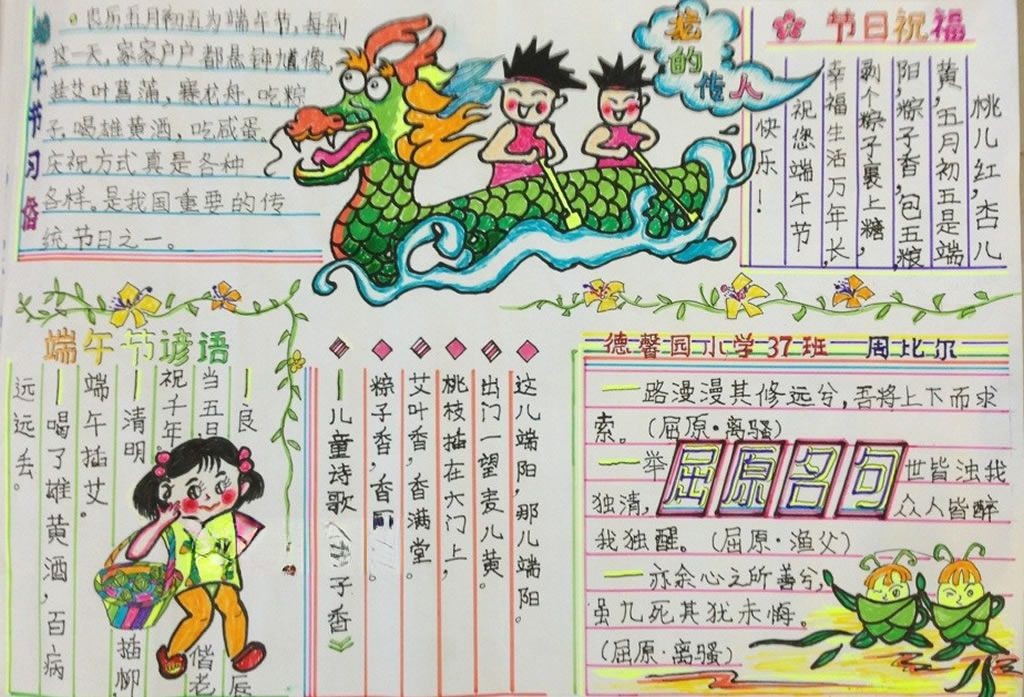 端午节习俗
农历五月初五为端午节,每到
这一天,家家户户都悬钟馗像,
挂艾叶菖蒲,赛龙舟,吃粽
子,喝雄黄酒,吃咸蛋,
庆祝方式真是各种
各样。是我国重要的传
统节日之一。
龙的
传人
节日祝福
桃儿红,杏儿
黄,五月初五是端
阳,粽子香,包五粮
剥个粽子裹上糖,
幸福生活万年长,
祝您端午节
快乐!
端午节谚语
一良辰
当五日 偕老
祝千年
一清明插柳
端午插艾。
一喝了雄黄酒,百病
远远丢。
这儿端阳,那儿端阳。
出门一望麦儿黄。
桃枝插在大门上,
艾叶香,香满堂。
粽子香,香。
一儿童诗歌 子香》
德馨园小学37班 周比尔
一路漫漫其修远兮,吾将上下而求
索。(屈原·离骚)
屈原名句
一举世皆浊我
独清,众人皆醉
我独醒。(屈原·渔父)
一亦余心之所善兮,
虽九死其犹未悔。
(屈原·离骚)